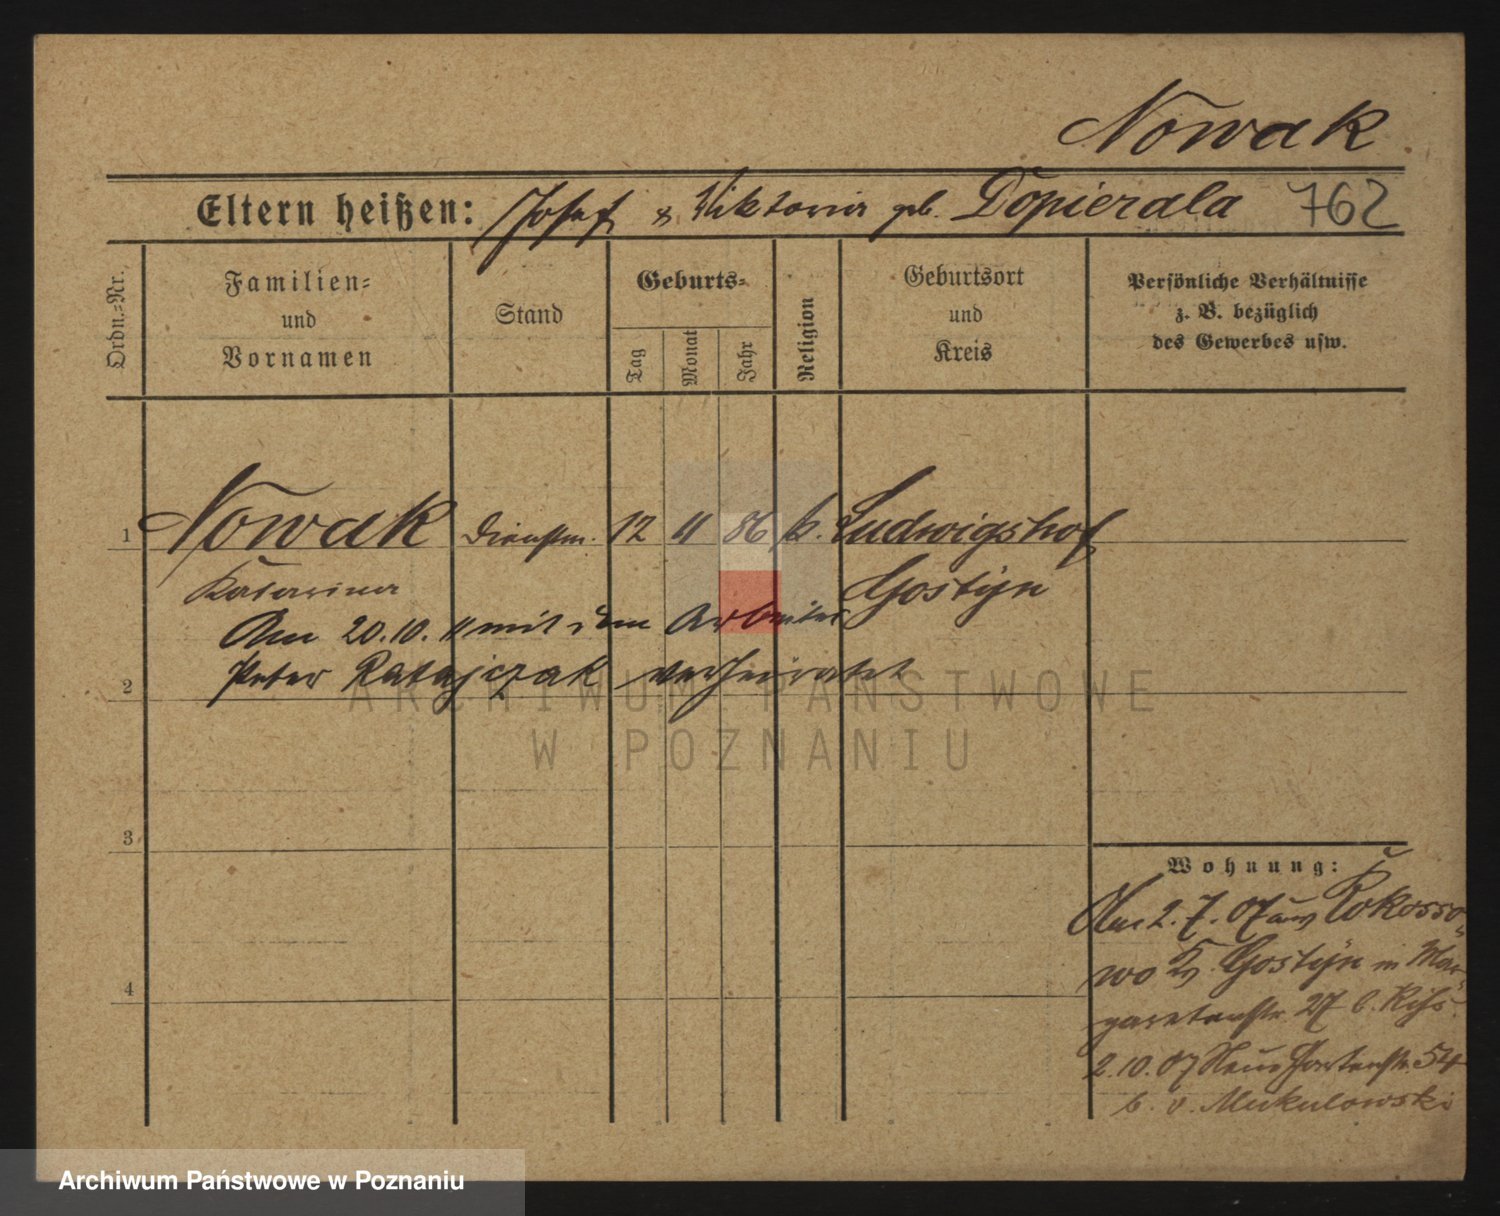 Nowak
Eltern heißen: Josef & Viktoria geb. Dopierala 762
Ordn.=Nr.
Familien=
und
Vornamen
Stand
Geburts=
Tag
Monat
Jahr
Religion
Geburtsort
und
Kreis
Persönliche Verhältnisse
z. B. bezüglich
des Gewerbes usw.
1 Nowak Dienstm. 12 11 86 k. Ludwigshof
Katarina Gostyn
Am 20.10.11 mit dem Arbeiter
Peter Ratajczak verheiratet
2
3
4
Wohnung:
Am 2.7.07 aus Rokosso=
wo Kr. Gostyn in Mar=
garetenstr. 27 b.
2.10.07 Neue Gartenstr. 54
b. v. Mukulowski
ARCHIWUM PAŃSTWOWE
W POZNANIU
Archiwum Państwowe w Poznaniu